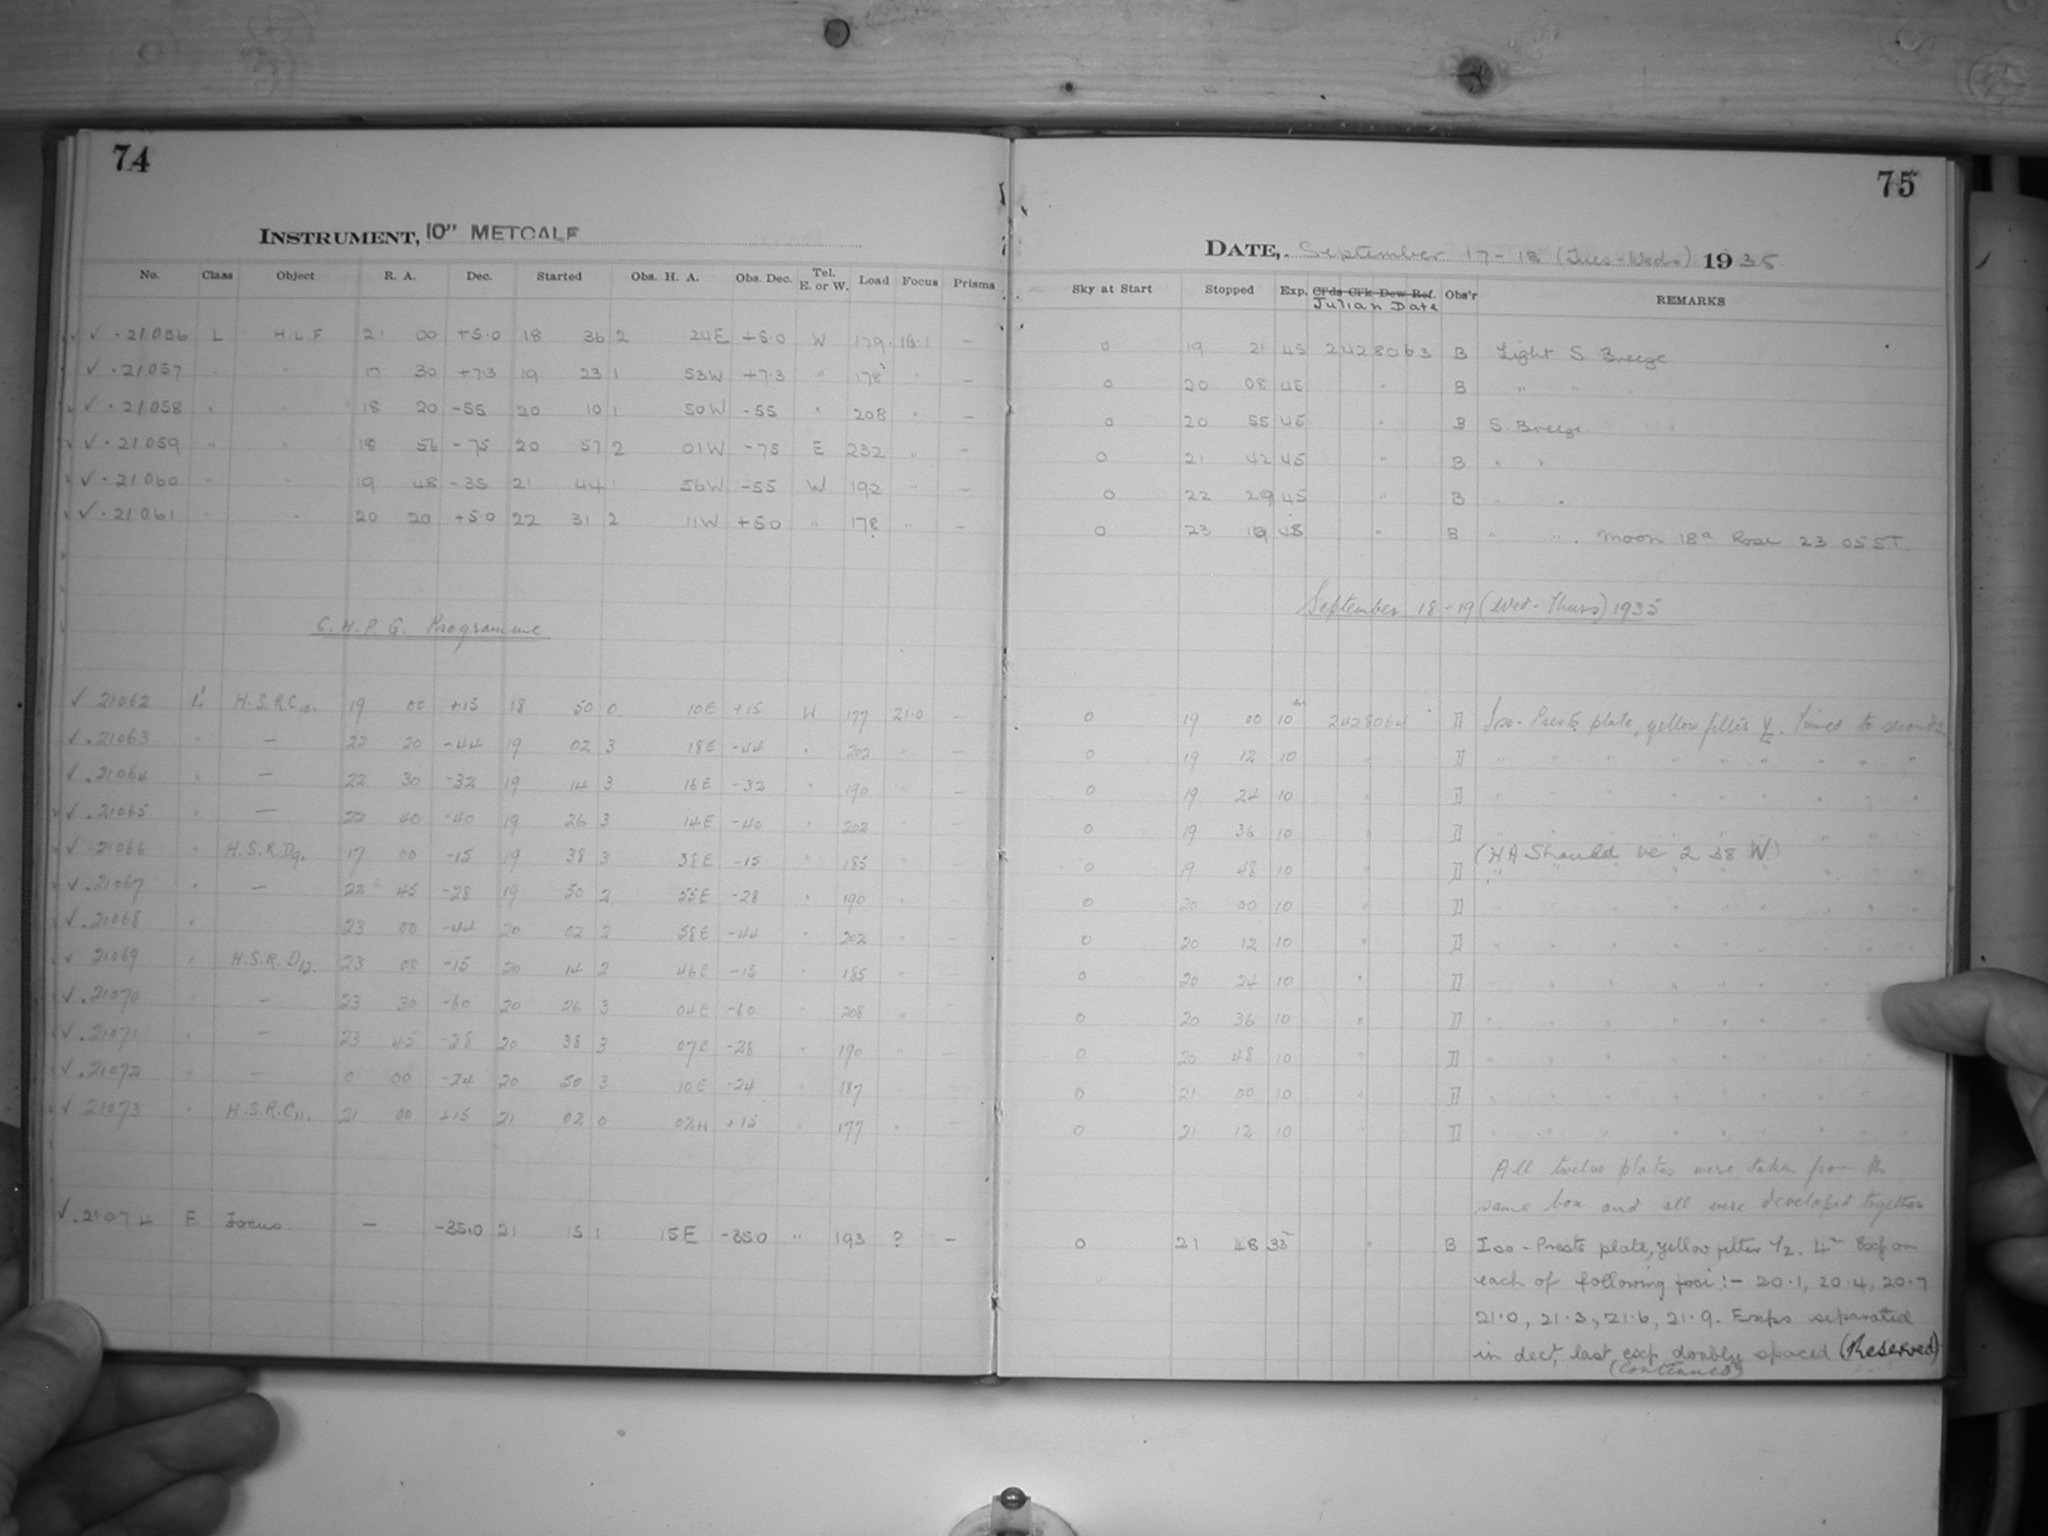 74
INSTRUMENT, 10" METCALF
No. Class Object R. A. Dec. Started Obs. H. A. Obs. Dec. Tel. E. or W. Load Focus Prisms
✓ . 21056 L H.L.F 21 00 +5.0 18 36 2 24E +5.0 W 179 —
✓ . 21057 " " 17 30 +7.3 19 23 1 53W +7.3 " 178 " —
✓ . 21058 " " 18 20 -55 20 10 1 50W -55 " 208 " —
✓ . 21059 " " 18 56 -75 20 57 2 01W -75 E 232 " —
✓ . 21060 " " 19 48 21 44 1 56W -55 W 192 " —
✓ . 21061 " " 20 20 +5.0 22 31 2 11W +5.0 " 178 " —
C.H.P.G. Programme
✓ 21062 L H.S.R.C10. 19 00 +15 18 50 0 10E +15 W 177 21.0 —
✓ . 21063 " — 22 20 -44 19 02 3 18E -44 " 202 " —
✓ . 21064 " — 22 30 -32 19 14 3 16E -32 " 190 " —
✓ . 21065 " — 22 40 -40 19 26 3 14E -40 " 202 " —
✓ 21066 " H.S.R.D9. 17 00 -15 19 38 3 38E -15 " 185 " —
✓ . 21067 " — 22 45 -28 19 50 2 55E -28 " 190 " —
✓ . 21068 " 23 00 -44 20 02 2 58E -44 " 202 " —
✓ 21069 " H.S.R.D12. 23 00 -15 20 14 2 46E -15 " 185 " —
✓ . 21070 " — 23 30 -60 20 26 3 04E -60 " 208 " —
✓ . 21071 " — 23 45 -28 20 38 3 07E -28 " 190 " —
✓ . 21072 " — 0 00 -24 20 50 3 10E -24 " 187 " —
✓ 21073 " H.S.R.C11. 21 00 +15 21 02 0 +15 " 177 " —
✓ . 21074 F Focus — -35.0 21 15 1 15E -35.0 " 193 ? —
75
DATE, September 17-18 (Tues-Weds) 1935
Sky at Start Stopped Exp. Cl'ds Cl'k Dew Ref. Obs'r REMARKS
Julian Date
0 19 21 45 2428063 B Light S Breeze
0 20 08 45 " B " "
0 20 55 45 " B S Breeze
0 21 42 45 " B " "
0 22 29 45 " B " "
0 23 " B " " . Moon 18d Rose 23 05 ST.
September 18-19 (Wed-Thurs) 1935
0 19 00 10 2428064 Iso-Presto plate, yellow filter Y2. Timed to seconds.
0 19 12 10 "
0 19 24 10 "
0 19 36 10 "
(HA Should be 2 38 W.)
0 19 48 10 "
0 20 00 10 "
0 20 12 10 "
0 20 24 10 "
0 20 36 10 "
0 20 48 10 "
0 21 00 10 "
0 21 12 10 "
All twelve plates were taken from the
same box and all were developed together
0 21 48 33 " B Iso-Presto plate, yellow filter Y2. 4m Exp on
each of following foci :- 20.1, 20.4, 20.7
21.0, 21.3, 21.6, 21.9. Exps separated
in dect, last exp doubly spaced (Reserved)
(Continued)